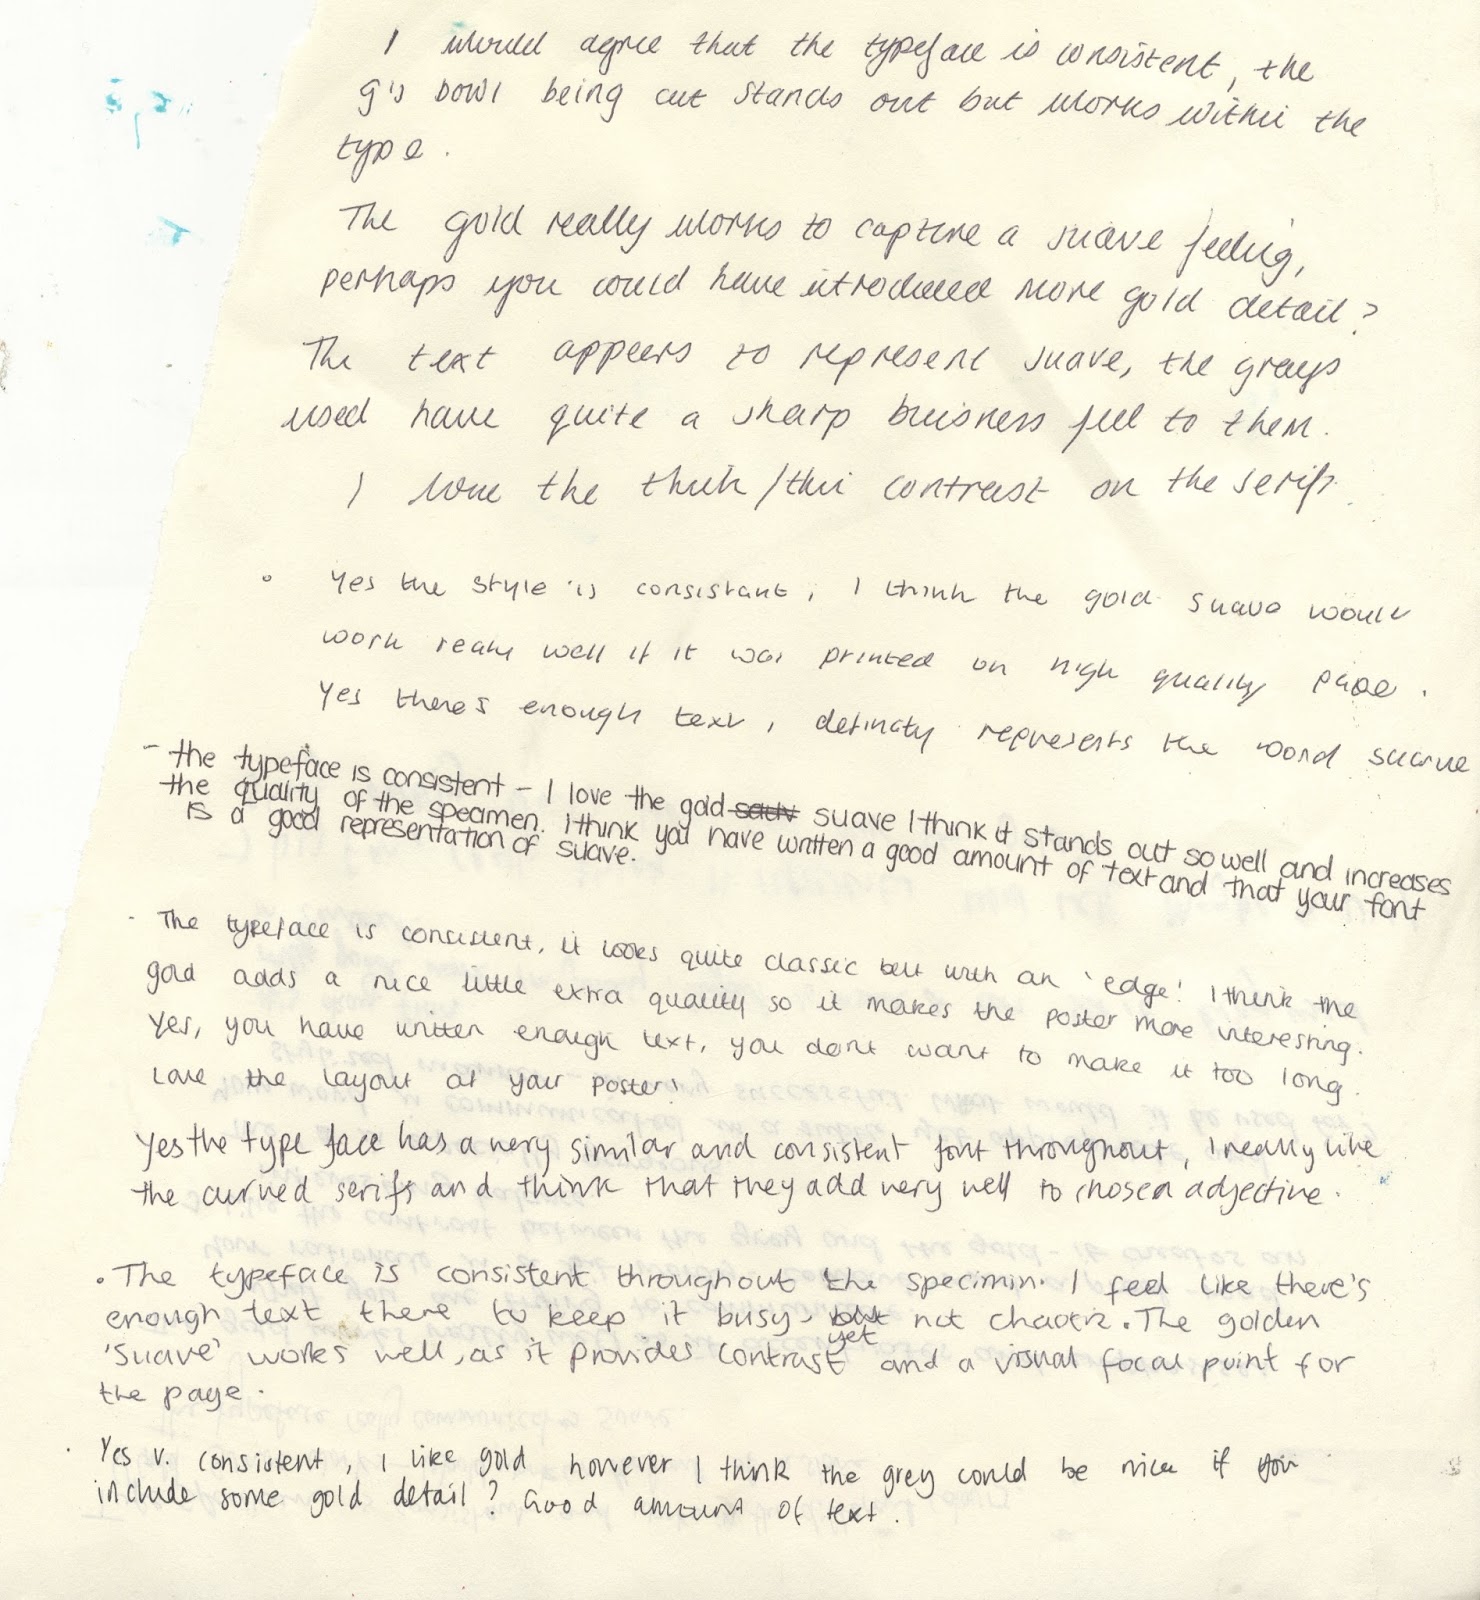 I would agree that the typeface is consistent, the
g's bowl being cut stands out but works within the
type.
The gold really works to capture a suave feeling,
perhaps you could have introduced more gold detail?
The text appeers to represent suave, the greys
used have quite a sharp buisness feel to them.
I love the thick/thin contrast on the serifs.
Yes the style is consistant, I think the gold suave would
work really well if it was printed on high quality
Yes there's enough text, definaty represents the word suave
- the typeface is consistent - I love the gold suave I think it stands out so well and increases
the quality of the specimen. I think you have written a good amount of text and that your font
is a good representation of suave.
- The typeface is consistent, it looks quite classic but with an 'edge'! I think the
gold adds a nice little extra quality so it makes the poster more interesting.
Yes, you have written enough text, you dont want to make it too long.
Love the layout of your poster!
Yes the type face has a very similar and consistent font throughout, I really like
the curved serifs and think that they add very well to chosen adjective.
• The typeface is consistent throughout the specimin. I feel like there's
enough text there to keep it busy, yet not chaotic. The golden
'Suave' works well, as it provides contrast and a visual focal point for
the page.
• Yes v. consistent, I like gold however I think the grey could be nice if you
include some gold detail? Good amount of text.